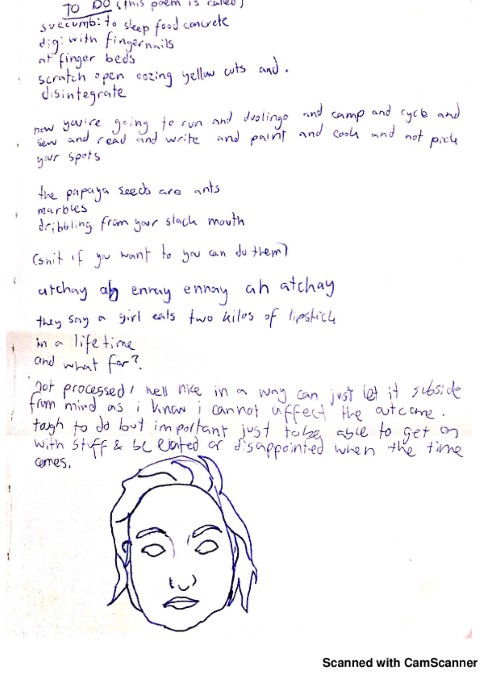 TO DO (this poem is called)
succumb: to sleep food concrete
dig: with fingernails
at finger beds
scratch open oozing yellow cuts and .
disintegrate
now you're going to run and duolingo and camp and cycle and
sew and read and write and paint and cook and not pick
your spots
the papaya seeds are ants
marbles
dribbling from your slack mouth
(shit if you want to you can do them)
atchay ah ennay ennay ah atchay
they say a girl eats two kilos of lipstick
in a lifetime
and what for?
not processed, well nice in a way can just let it subside
from mind as i know i cannot affect the outcome.
tough to do but important just to be able to get on
with stuff & be elated or disappointed when the time
comes.
Scanned with CamScanner